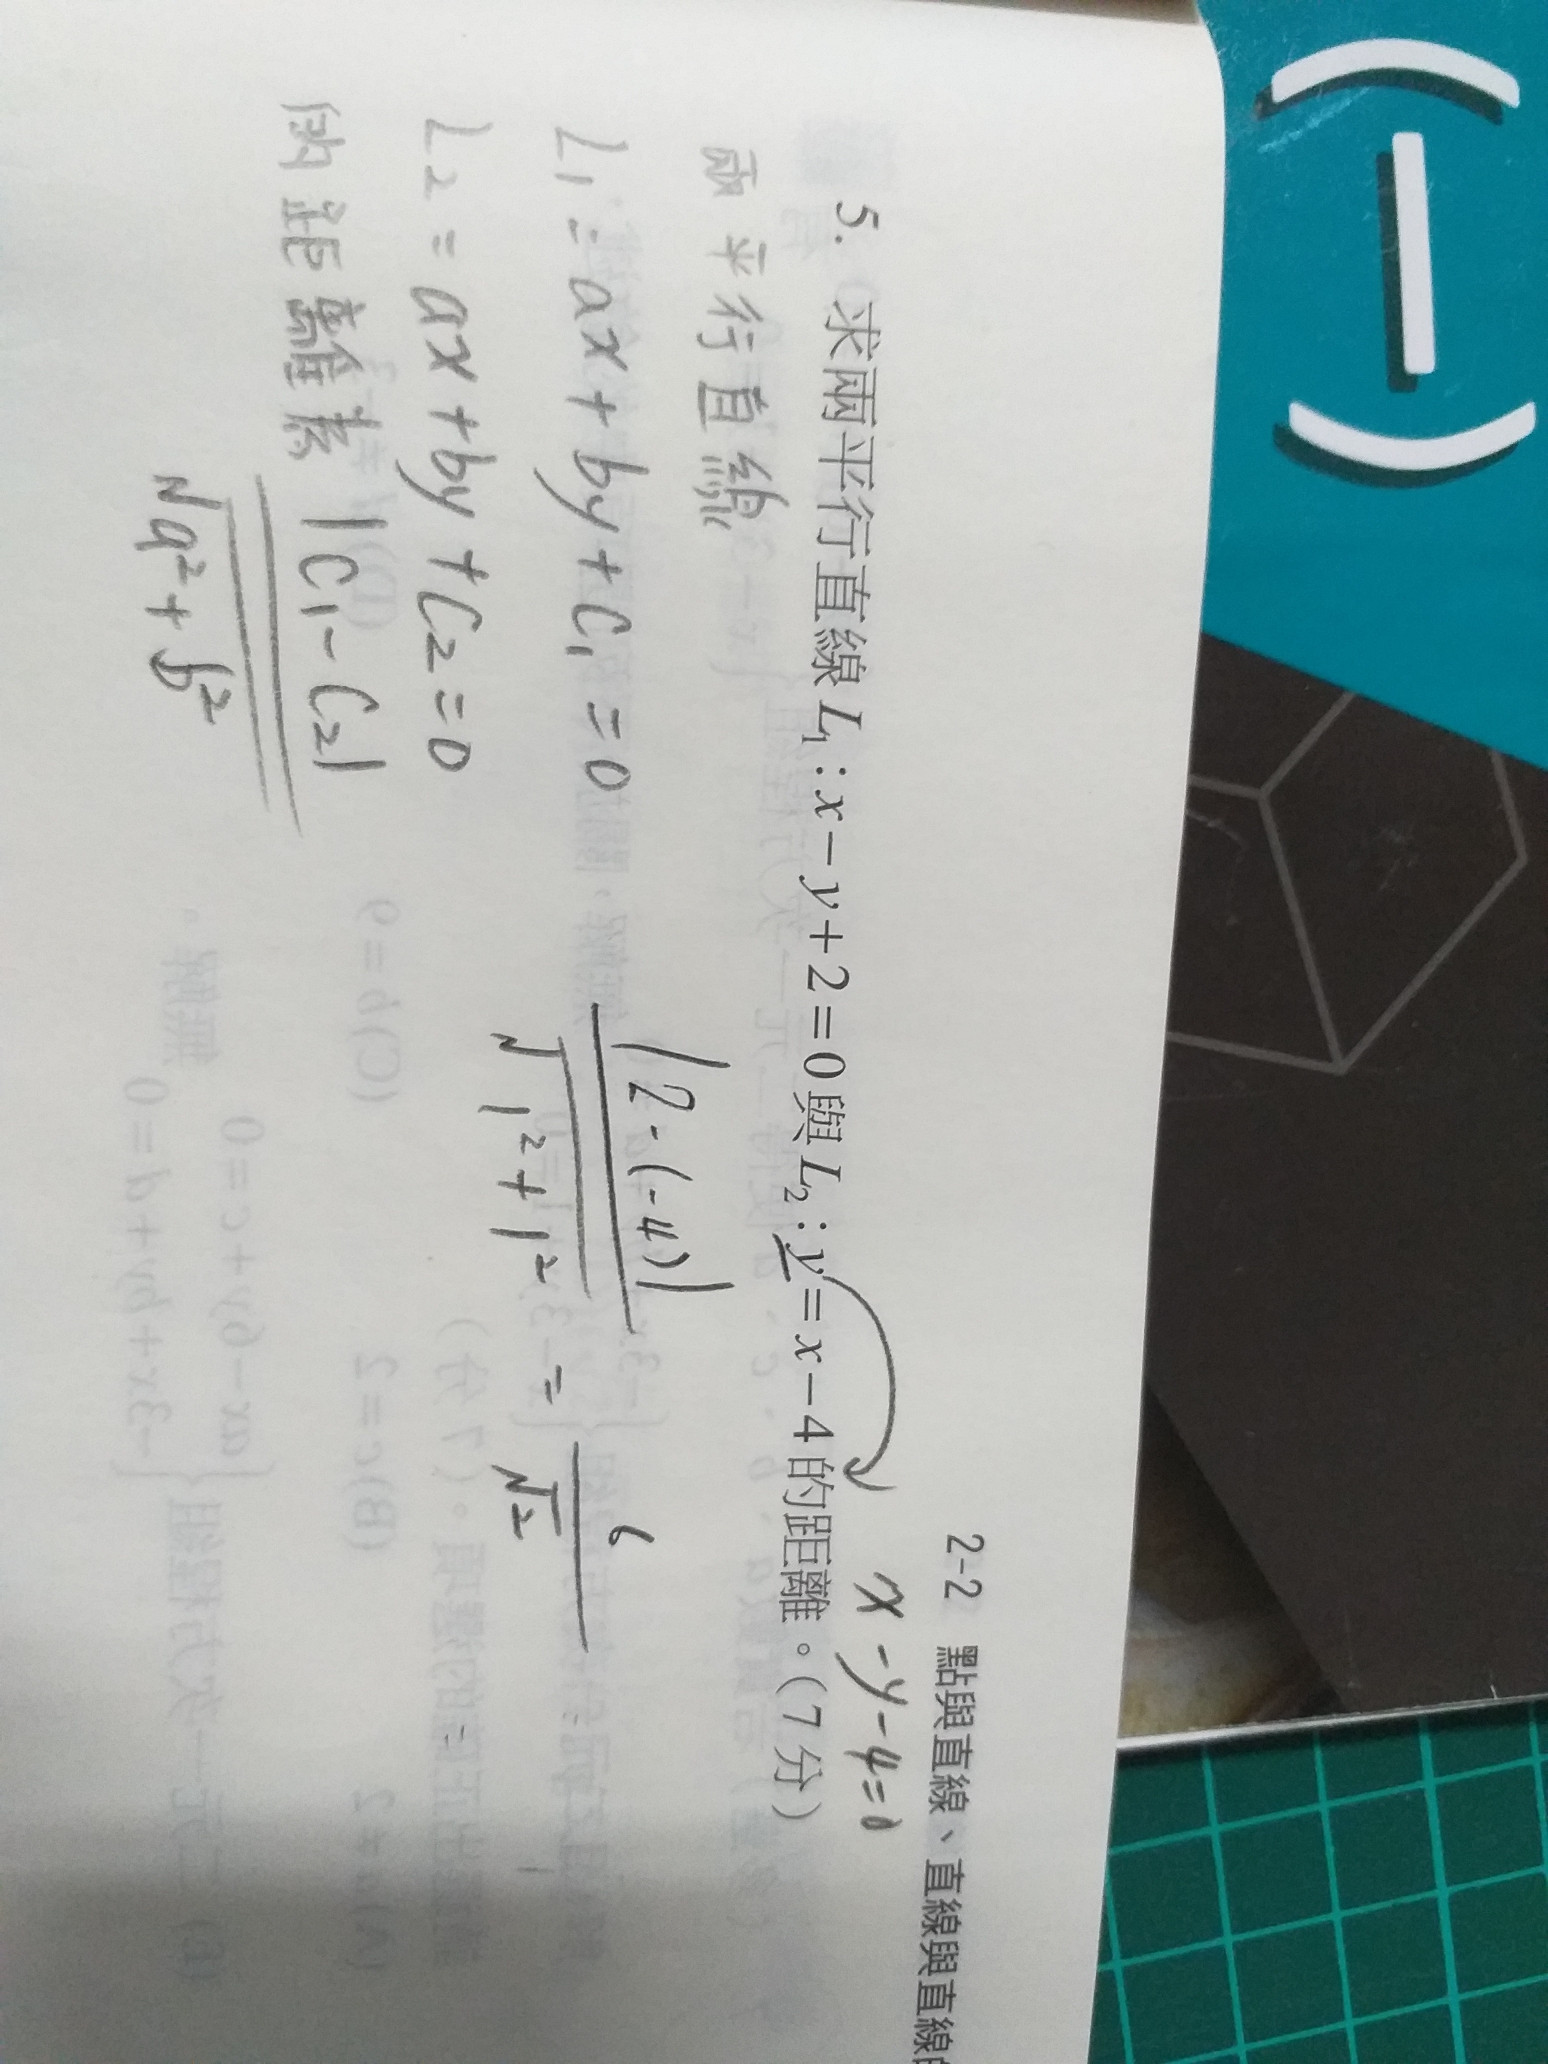 (一)
2-2 點與直線、直線與直線
x-y-4=0
5. 求兩平行直線 L₁:x-y+2=0與L₂:y=x-4的距離。(7分)
兩平行直線
L₁=ax+by+C₁=0
L₂=ax+by+C₂=0
兩距離為 |C₁-C₂|
√a²+b²
|2-(-4)|
√1²+1²
=
6
√2